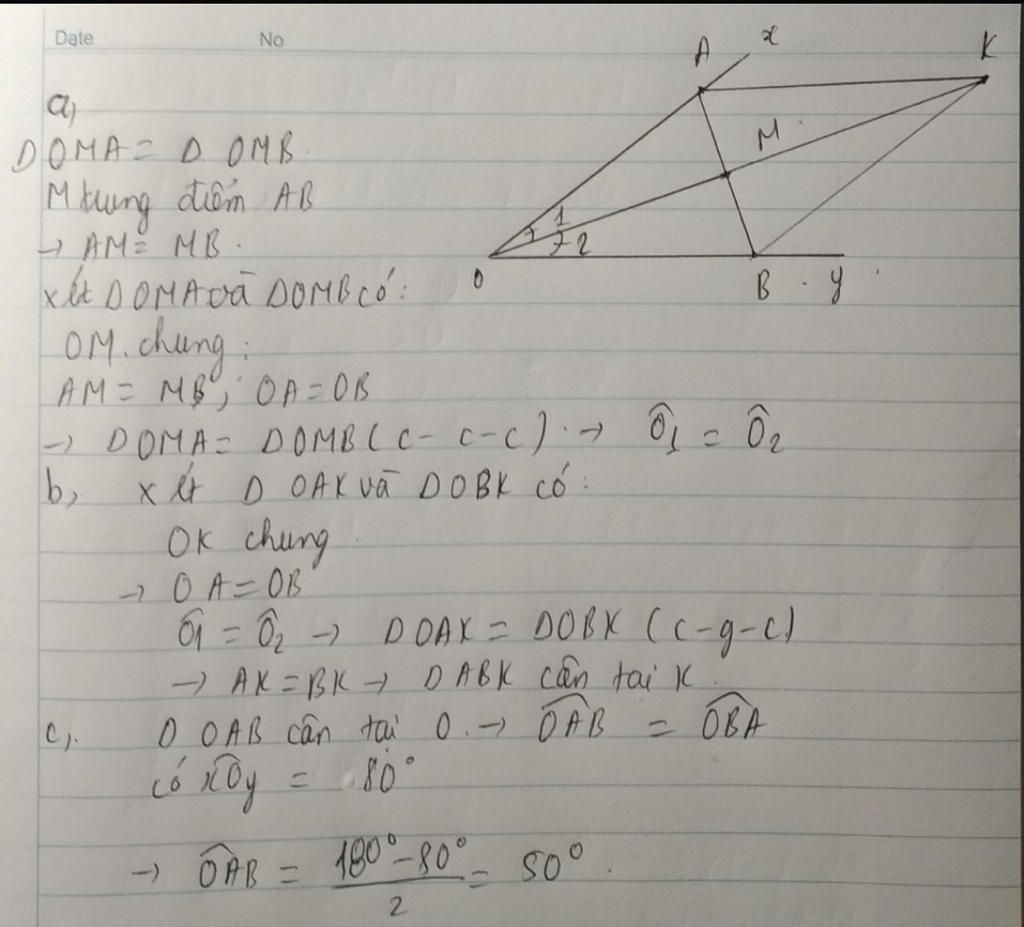 Date No
a,
D OMA = D OMB.
M trung điểm AB
→ AM = MB.
xét D OMA và D OMB có:
OM chung:
AM = MB; OA = OB
→ D OMA = D OMB (c-c-c). → Ô1 = Ô2
b, xét D OAK và D OBK có:
OK chung.
→ OA = OB
Ô1 = Ô2 → D OAK = D OBK (c-g-c)
→ AK = BK → D ABK cân tại K.
c,. D OAB cân tại O. → OAB = OBA
có xOy = 80°
→ OAB = (180° - 80°)/2 = 50°.
A x K
M
1
2
O B y